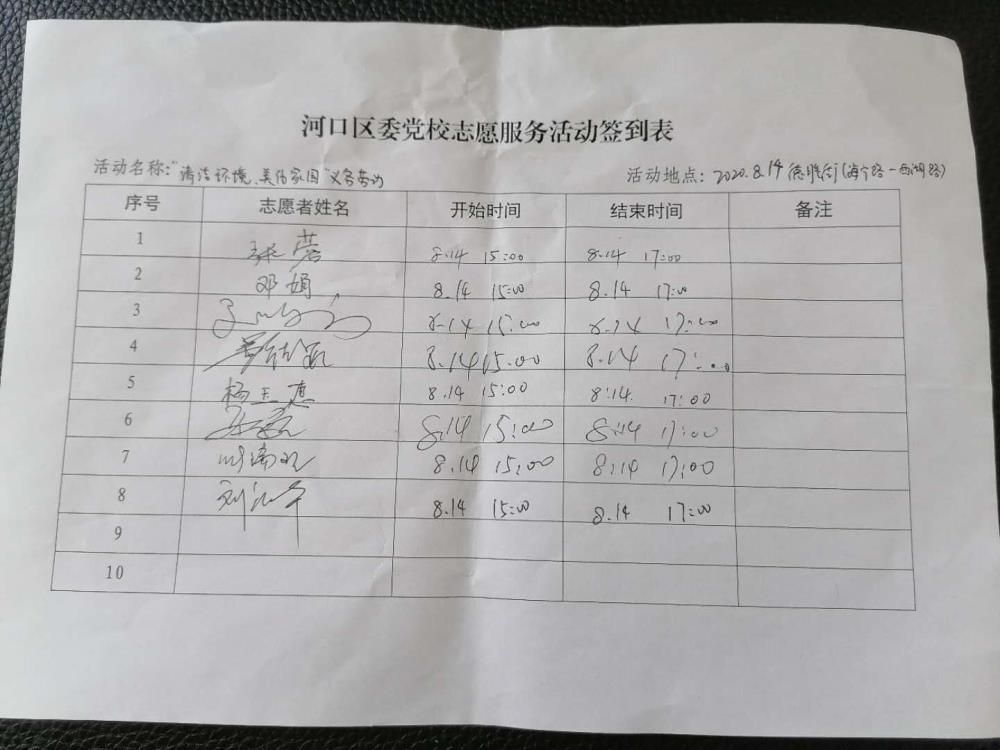 河口区委党校志愿服务活动签到表
活动名称："清洁环境、美化家园"义务劳动
活动地点：2020.8.14 德胜街(海宁路一西湖路)
序号 志愿者姓名 开始时间 结束时间 备注
1 张蓉 8.14 15:00 8.14 17:00
2 邓娟 8.14 15:00 8.14 17:00
3 8.14 15:00 8.14 17:00
4 8.14 15:00 8.14 17:00
5 杨玉惠 8.14 15:00 8:14. 17:00
6 8.14 15:00 8:14 17:00
7 8.14 15:00 8:14 17:00
8 8.14 15:00 8.14 17:00
9
10